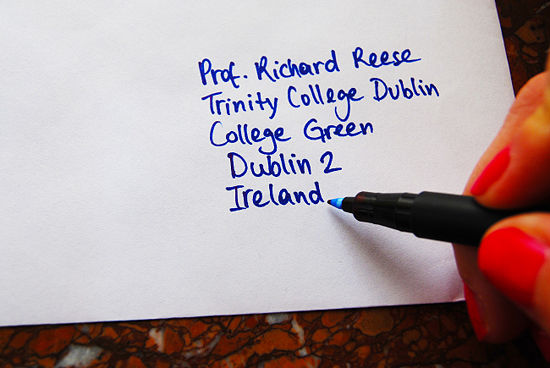 Prof. Richard Reese
Trinity College Dublin
College Green
Dublin 2
Ireland